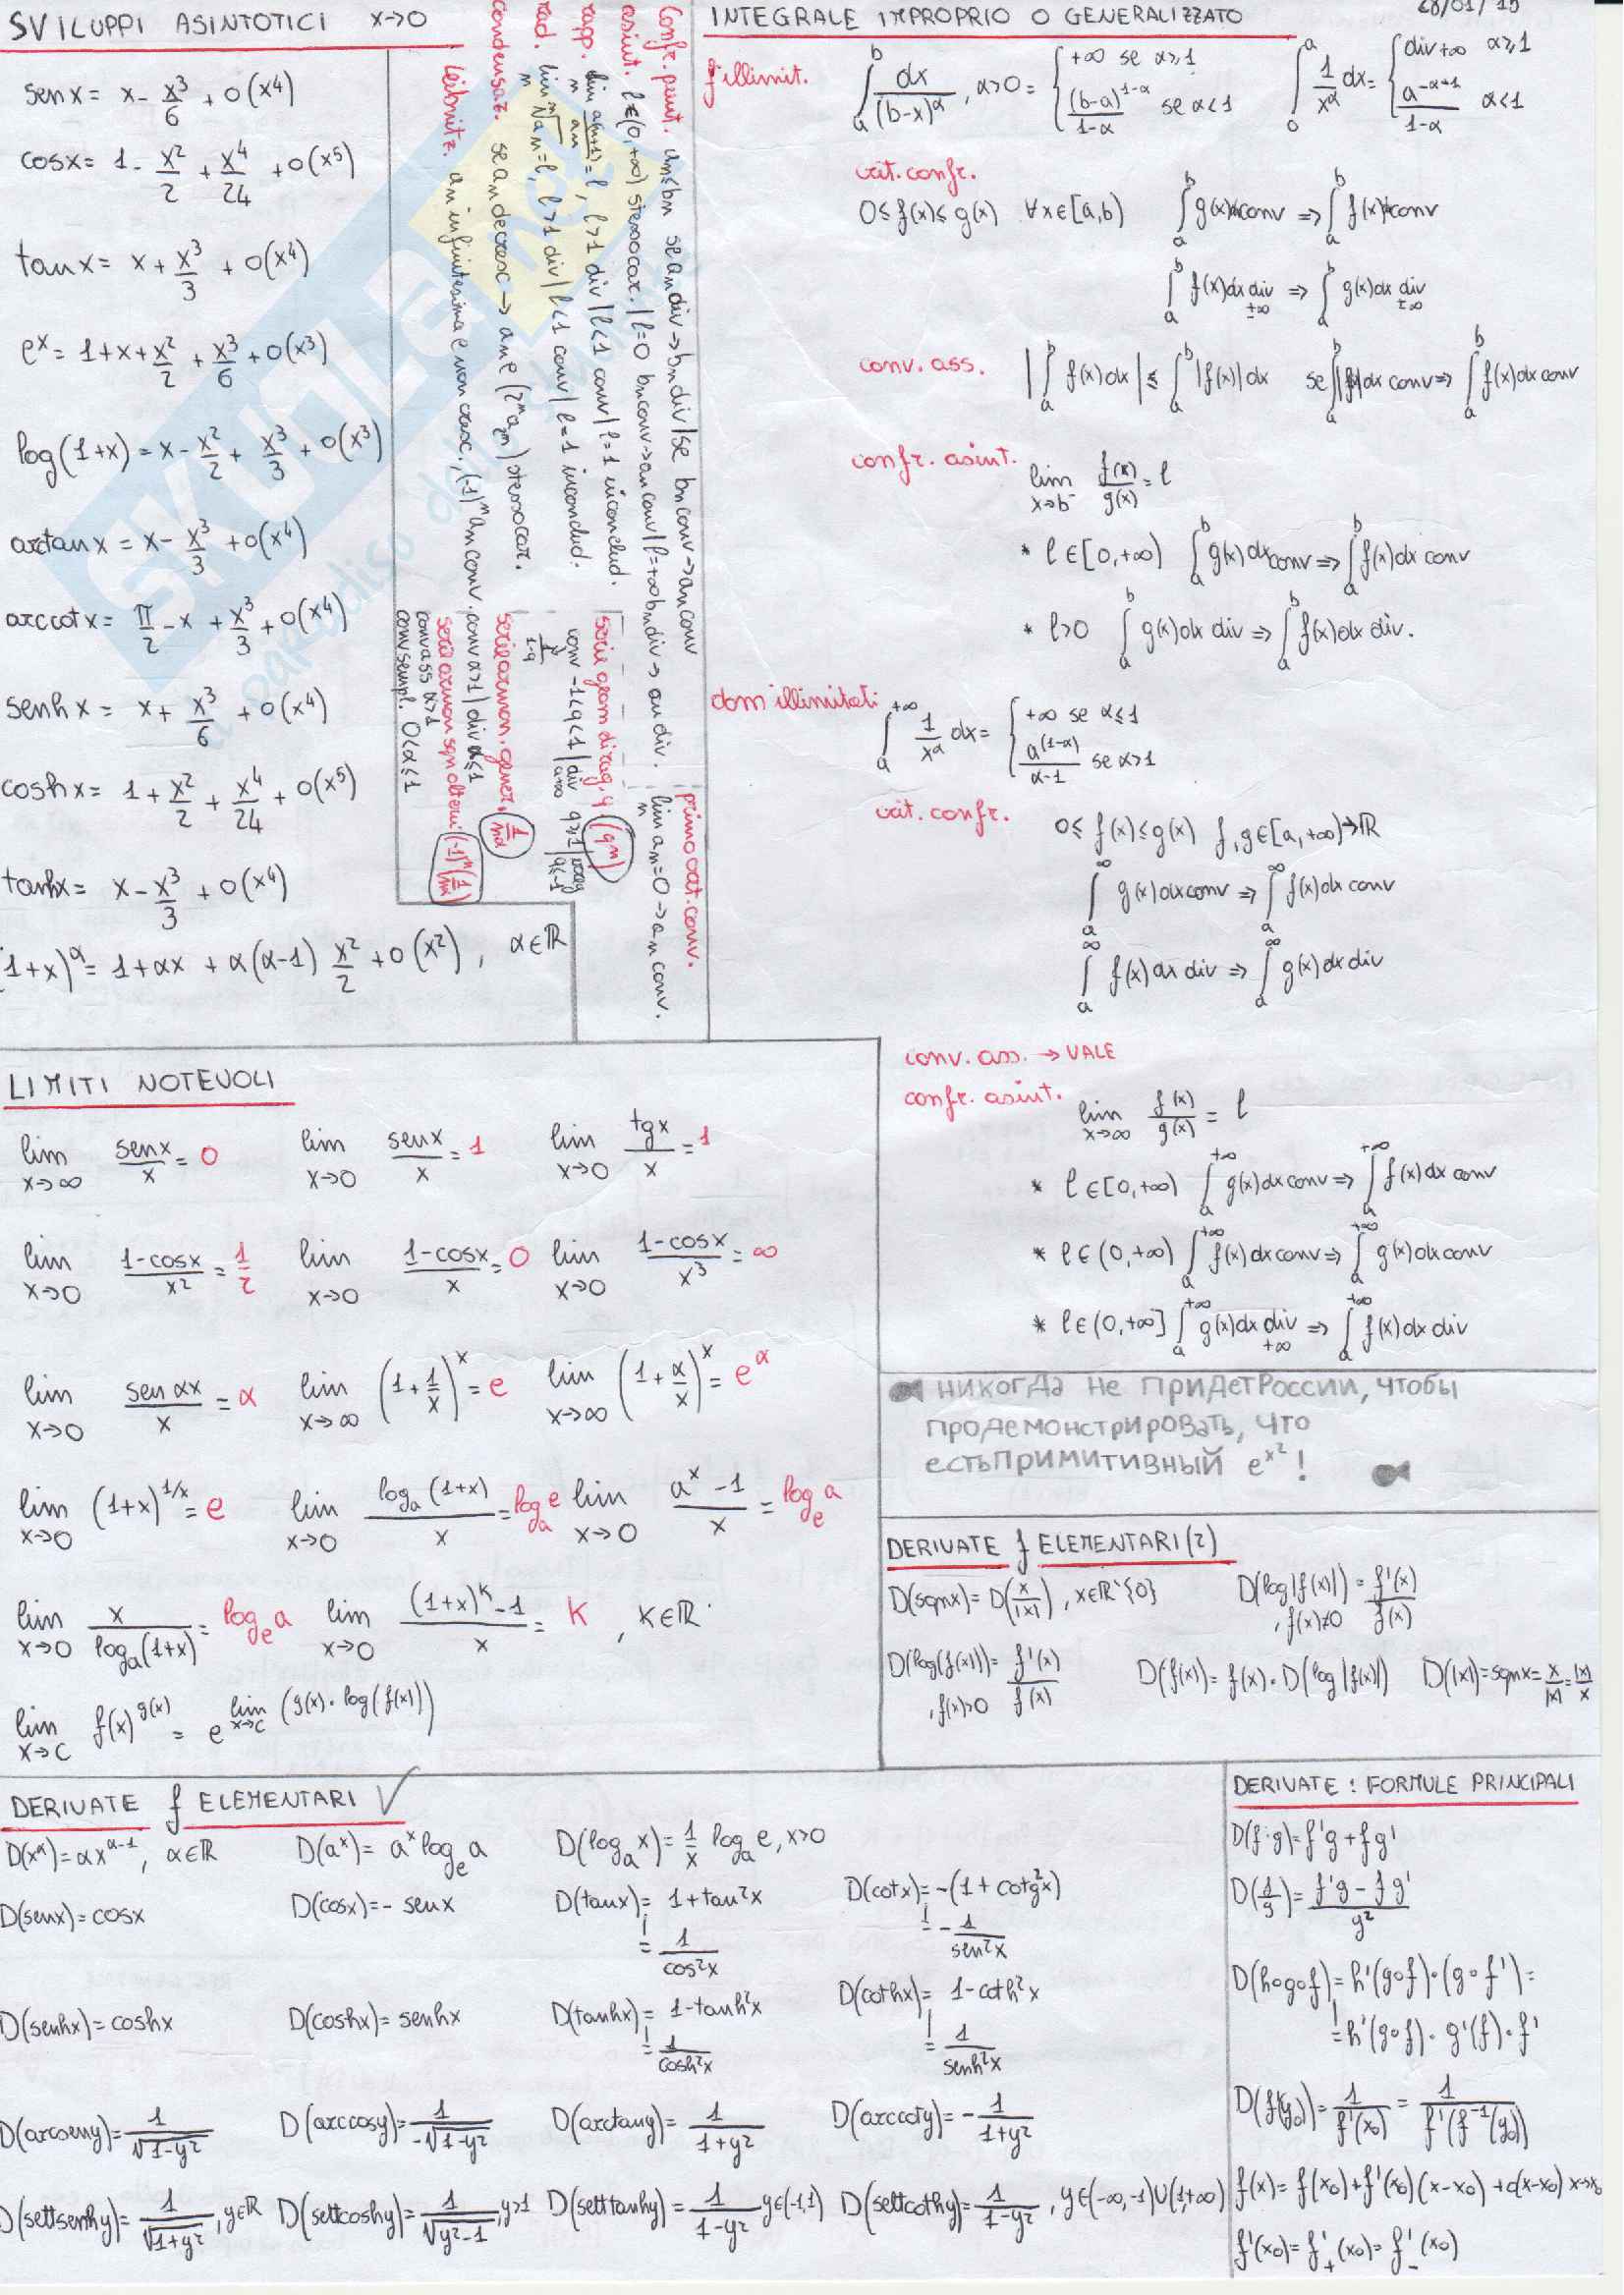 SVILUPPI ASINTOTICI x→0
sen x = x - x³/6 + o(x⁴)
cos x = 1 - x²/2 + x⁴/24 + o(x⁵)
tan x = x + x³/3 + o(x⁴)
eˣ = 1+x+x²/2 + x³/6 + o(x³)
log(1+x) = x - x²/2 + x³/3 + o(x³)
arctan x = x - x³/3 + o(x⁴)
arccot x = π/2 - x + x³/3 + o(x⁴)
senh x = x + x³/6 + o(x⁴)
cosh x = 1 + x²/2 + x⁴/24 + o(x⁵)
tanh x = x - x³/3 + o(x⁴)
(1+x)^α = 1+αx + α(α-1) x²/2 + o(x²), α∈ℝ
Confr. punt. an≤bn se an div → bn div | se bn conv → an conv
asint. l∈(0,+∞) stesso car. | l=0 bn conv → an conv | l=+∞ bn div → an div.
rapp. lim n a(n+1)/an = l, l>1 div | l<1 conv | l=1 inconclud.
rad. lim n ⁿ√an = l, l>1 div | l<1 conv | l=1 inconclud.
condensaz. se an decresc → an e (2ⁿa2ⁿ) stesso car.
Leibnitz. an infinitesima e non cresc, (-1)ⁿ an conv.
primo crit. conv. lim n an=0 → an conv.
serie geom di rag. q (qⁿ)
conv -1<q<1 | div q≥1
1/1-q a+∞ q≤-1
serie armon. gener. 1/nα
conv α>1 | div α≤1
serie armon sgn alterni (-1)ⁿ(1/nα)
conv ass α>1
conv sempl. 0<α≤1
INTEGRALE IMPROPRIO O GENERALIZZATO 28/01/15
f illimit. ∫ₐᵇ dx/(b-x)^α, α>0 = { +∞ se α≥1
(b-a)^(1-α)/(1-α) se α<1
∫₀ᵃ 1/x^α dx = { div+∞ α≥1
a^(-α+1)/(1-α) α<1
crit. confr.
0≤f(x)≤g(x) ∀x∈[a,b) ∫ₐᵇ g(x)dx conv ⇒ ∫ₐᵇ f(x)dx conv
∫ₐᵇ f(x)dx div ±∞ ⇒ ∫ₐᵇ g(x)dx div ±∞
conv. ass. |∫ₐᵇ f(x)dx| ≤ ∫ₐᵇ |f(x)|dx se ∫ₐᵇ |f|dx conv ⇒ ∫ₐᵇ f(x)dx conv
confr. asint. lim x→b⁻ f(x)/g(x) = l
* l∈[0,+∞) ∫ₐᵇ g(x)dx conv ⇒ ∫ₐᵇ f(x)dx conv
* l>0 ∫ₐᵇ g(x)dx div ⇒ ∫ₐᵇ f(x)dx div.
dom illimitati ∫ₐ^+∞ 1/x^α dx = { +∞ se α≤1
a^(1-α)/(α-1) se α>1
crit. confr. 0≤f(x)≤g(x) f,g∈[a,+∞)→ℝ
∫ₐ^∞ g(x)dx conv ⇒ ∫ₐ^∞ f(x)dx conv
∫ₐ^∞ f(x)dx div ⇒ ∫ₐ^∞ g(x)dx div
conv. ass. → VALE
confr. asint. lim x→∞ f(x)/g(x) = l
* l∈[0,+∞) ∫ₐ^+∞ g(x)dx conv ⇒ ∫ₐ^+∞ f(x)dx conv
* l∈(0,+∞) ∫ₐ^+∞ f(x)dx conv ⇒ ∫ₐ^+∞ g(x)dx conv
* l∈(0,+∞] ∫ₐ^+∞ g(x)dx div +∞ ⇒ ∫ₐ^+∞ f(x)dx div
никогда не придет России, чтобы
продемонстрировать, что
есть примитивный e^x² !
LIMITI NOTEVOLI
lim x→∞ senx/x = 0 lim x→0 senx/x = 1 lim x→0 tgx/x = 1
lim x→0 1-cosx/x² = 1/2 lim x→0 1-cosx/x = 0 lim x→0 1-cosx/x³ = ∞
lim x→0 sen αx/x = α lim x→∞ (1+1/x)ˣ = e lim x→∞ (1+α/x)ˣ = e^α
lim x→0 (1+x)^1/x = e lim x→0 logₐ(1+x)/x = logₐe lim x→0 aˣ-1/x = logₑa
lim x→0 x/logₐ(1+x) = logₑa lim x→0 (1+x)^K-1/x = K, K∈ℝ
lim x→c f(x)^g(x) = e^lim x→c (g(x)·log(f(x)))
DERIVATE f ELEMENTARI(2)
D(sgnx) = D(x/|x|), x∈ℝ\{0} D(log|f(x)|) = f'(x)/f(x)
, f(x)≠0
D(log(f(x))) = f'(x)/f(x) D(f(x)) = f(x)·D(log|f(x)|) D(|x|) = sgnx = x/|x| = |x|/x
, f(x)>0
DERIVATE f ELEMENTARI √
D(x^α) = αx^(α-1), α∈ℝ D(aˣ) = aˣ logₑa D(logₐx) = 1/x logₐe, x>0
D(senx) = cosx D(cosx) = - senx D(tanx) = 1+tan²x D(cotx) = -(1+cotg²x)
= 1/cos²x = -1/sen²x
D(senhx) = coshx D(coshx) = senhx D(tanhx) = 1-tanh²x D(cothx) = 1-coth²x
= 1/cosh²x = 1/senh²x
D(arcseny) = 1/√1-y² D(arccosy) = 1/-√1-y² D(arctany) = 1/1+y² D(arccoty) = -1/1+y²
D(settsenhy) = 1/√1+y², y∈ℝ D(settcoshy) = 1/√y²-1, y>1 D(setttanhy) = 1/1-y² y∈(-1,1) D(settcothy) = 1/1-y², y∈(-∞,-1)∪(1,+∞)
DERIVATE: FORMULE PRINCIPALI
D(f·g) = f'g + fg'
D(f/g) = f'g - fg'/g²
D(h∘g∘f) = h'(g∘f)·(g∘f') =
= h'(g∘f)·g'(f)·f'
D(f⁻¹(y₀)) = 1/f'(x₀) = 1/f'(f⁻¹(y₀))
f(x) = f(x₀)+f'(x₀)(x-x₀)+o(x-x₀) x→x₀
f'(x₀) = f'₊(x₀) = f'₋(x₀)
SKUOLA.net
il paradiso dello